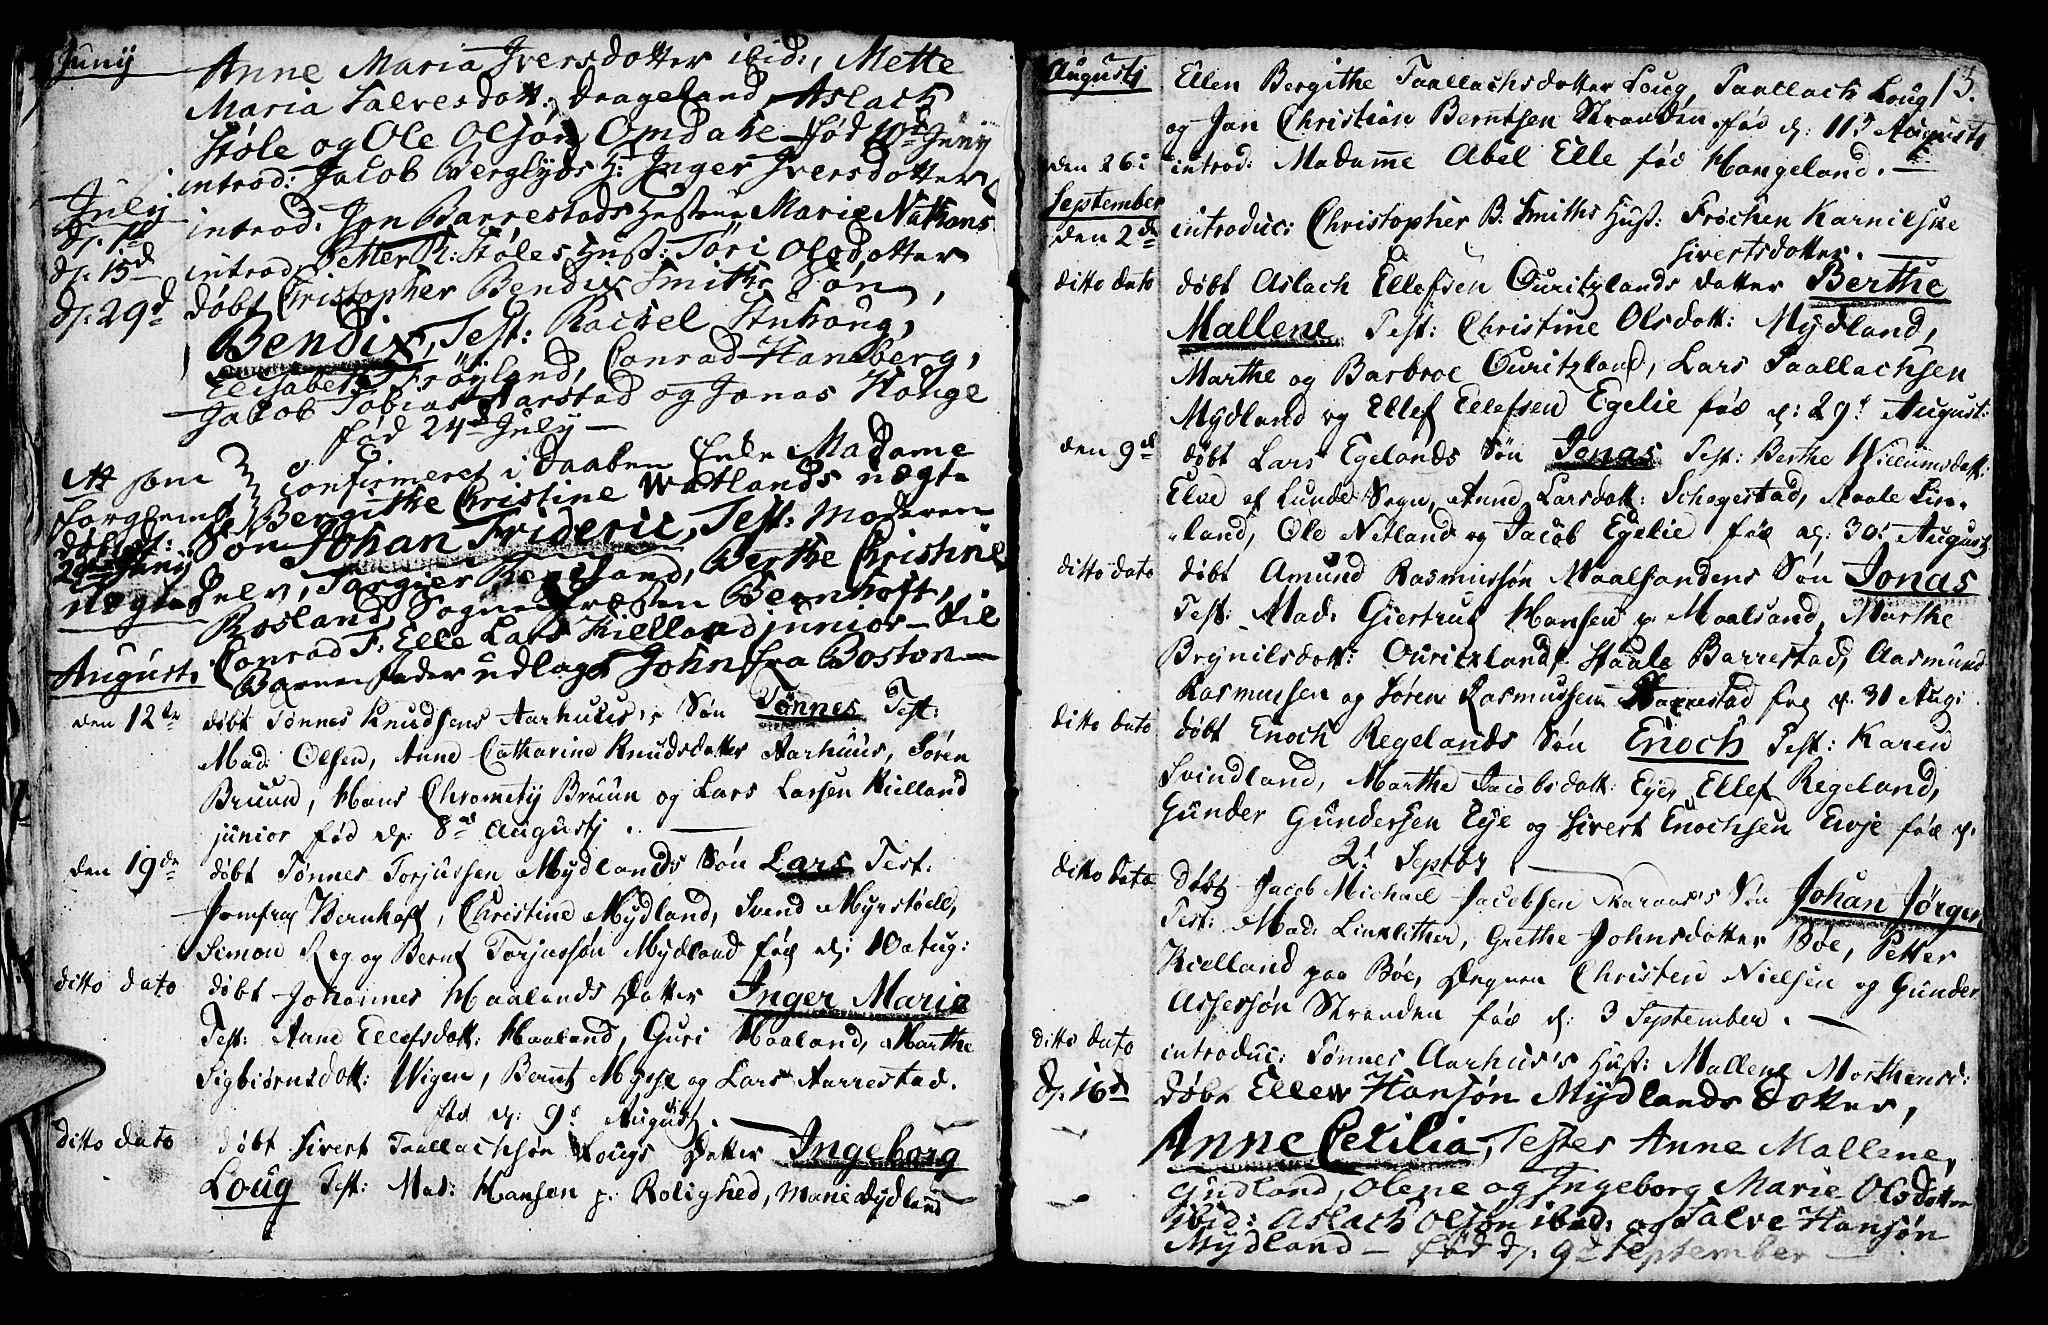 Junij
Anne Maria Iversdotter ibid:, Mette
Maria Salvesdott: Drageland, Aslach
Støle og Ole Olsøn Omdahl fød 10d Junij
introd: Jacob Berglyds H: Inger Iversdotter
July
dn 1st introd. Jon Barrestads Hustrue Marie Nathans
dn 15d introd. Petter R: Støles Hust: Töri Olsdotter
dn 29d døbt Christopher Bendix Smiths Søn,
Bendix, Test: Rachel Stuhoug,
Elisabeth Fröyland, Conrad Handberg,
Jacob Tobias Harstad og Jonas Houge
fød 24d July —
confirmeret i Daaben Madame
Bergithe Christine Watlands uægte
Søn Johan Frideric, Test: Moderen
Selv, Torgier Berthe Christine
Rosland, Sogne Præsten Bernhoft,
Conrad F. Elle Lars Kielland junior — til
Barne fader udlagt John fra Boston —
29de Junij
uægte
August.
den 12te døbt Tønnes Knudsens Aarhuus's Søn Tønnes Test:
Mad: Olsen, Anne Catharine Knudsdotter Aarhuus, Søren
Bruun, Hans Chrometij Bruun og Lars Larsen Kielland
junior fød dn: 8de Augustj. —
den 19de døbt Tønnes Torjussen Mydlands Søn Lars Test:
Jomfru Bernhoft, Christine Mydland, Svend Myrstøell,
Simon Reg og Bernt Torjussøn Mydland fød dn: 10 Aug:
ditto dato døbt Johannes Haalands Datter Inger Marie
Test: Anne Ellefsdott: Haaland, Guri Haaland, Marthe
Sigbiørnsdott: Wigen, Bernt Mysse og Lars Aarrestad.
fød d: 9de Augustj. —
ditto dato døbt Sivert Taallachsøn Lougs Datter Ingeborg
Loug Test: Mad: Hansen p: Rolighed, Marie Dydland
13.
Augustj
Ellen Bergithe Taallachsdotter Loug, Taallach Loug
og Jan Christian Berntsen Stranden fød d: 11t Augustj.
den 26: introd: Madame Abel Elle fød Hangeland. —
September
den 2de introduc: Christopher B. Smiths Hust: Frøchen Karnilske
Sivertsdotter. —
ditto dato døbt Aslach Ellefsen Ouritzlands Datter Berthe
Mallene Test: Christine Olsdott: Mydland,
Marthe og Barbroe Ouritzland, Lars Taallachsen
Mydland og Ellef Ellefsen Egelie fød d: 29t August:
den 9de døbt Lars Egelands Søn Jonas Test: Berthe Willumsdatt:
Elve af Lunde Sogn, Anne Larsdott: Schogestad, Staale Lin-
-land, Ole Netland og Jacob Egelie fød d: 30t August
ditto dato døbt Amund Rasmussøn Maalsandens Søn Jonas
Test: Mad. Giertrud Hansen p. Maalsand, Marthe
Brynilsdott: Ouritzland, Staale Barrestad, Aasmund
Rasmussen og Søren Rasmussen Harrestad fød d. 31 Aug:
ditto dato døbt Enoch Regelands Søn Enoch Test: Karen
Svindland, Marthe Jacobsdatt: Eye, Ellef Regeland,
Gunder Gundersen Eye og Sivert Enochsen Evje fød d.
2t Septbr. —
ditto dato døbt Jacob Michael Jacobsen Søn Johan Jørgen
Test: Mad: Linklither, Grethe Johnsdotter Bøe, Petter
Kielland paa Bøe, Degnen Christen Nielsen og Gunder
Assersøn Stranden fød d: 3 September. —
ditto dato introduc: Tønnes Aarhus's Hust: Mallene Morthensd:
dn 16d døbt Ellev Hansøn Mydlands Dotter,
Anne Cecilia, Tester Anne Mallene
Gudland, Olene og Ingeborg Marie Olsdotter
ibid: Aslach Olsøn ibid: og Salve Hansøn
Mydland — fød dn 9d September —